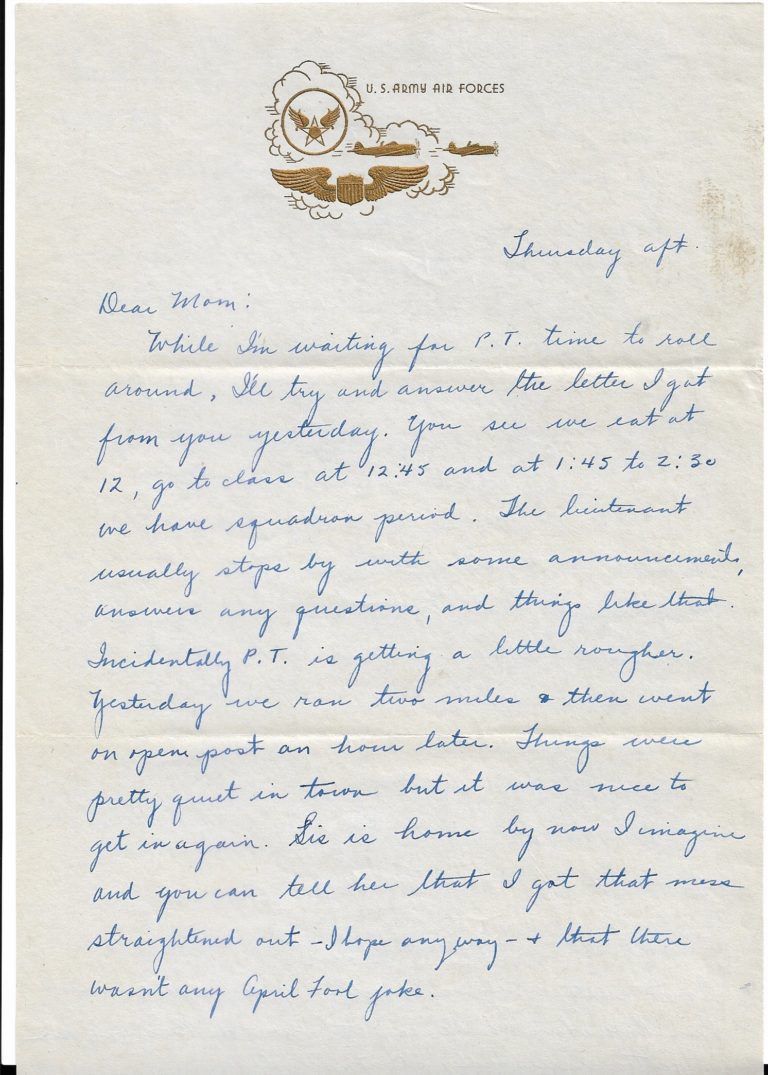 U. S. ARMY AIR FORCES
Thursday aft.
Dear Mom:
While I'm waiting for P. T. time to roll
around, I'll try and answer the letter I got
from you yesterday. You see we eat at
12, go to class at 12:45 and at 1:45 to 2:30
we have squadron period. The lieutenant
usually stops by with some announcements,
answers any questions, and things like that.
Incidentally P. T. is getting a little rougher.
Yesterday we ran two miles & then went
on open post an hour later. Things were
pretty quiet in town but it was nice to
get in again. Sis is home by now I imagine
and you can tell her that I got that mess
straightened out - I hope anyway - & that there
wasn't any April Fool joke.